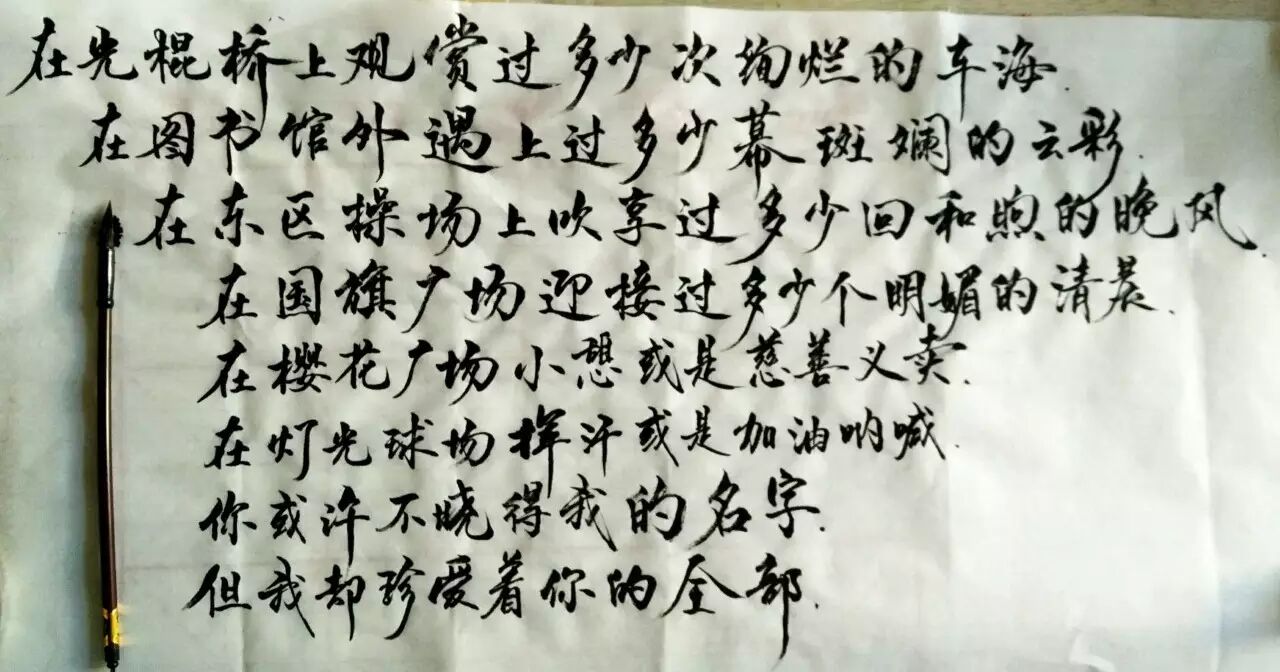 在光棍桥上观赏过多少次绚烂的车海.
在图书馆外遇上过多少幕斑斓的云彩.
在东区操场上吹享过多少回和煦的晚风.
在国旗广场迎接过多少个明媚的清晨.
在樱花广场小憩或是慈善义卖.
在灯光球场挥汗或是加油呐喊.
你或许不晓得我的名字.
但我却珍爱着你的全部.